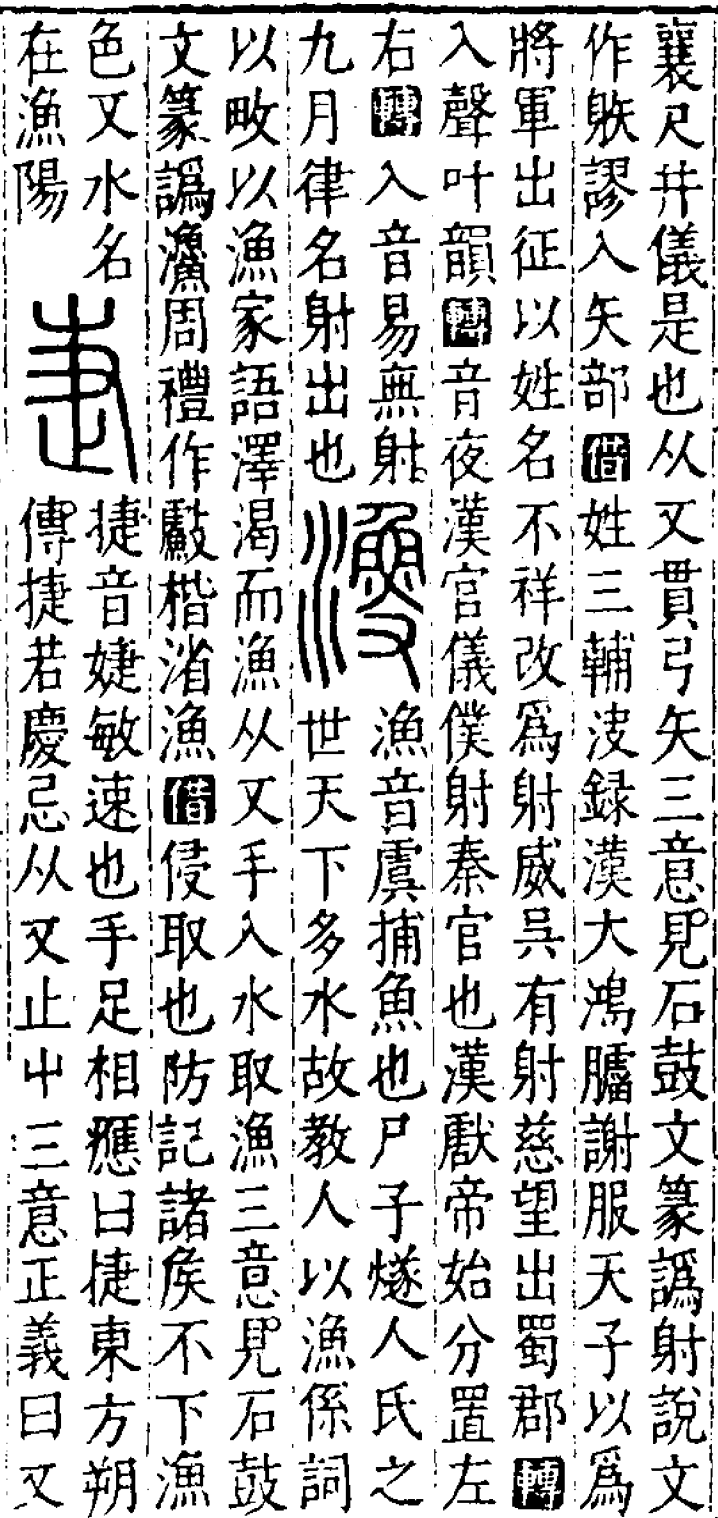 襄尺井儀是也从又貫弓矢三意見石鼓文篆譌射說文
作躲謬入矢部借姓三輔决録漢大鴻臚謝服天子以爲
將軍出征以姓名不祥改爲射威吳有射慈望出蜀郡轉
入聲叶韻轉音夜漢官儀僕射秦官也漢獻帝始分置左
右轉入音易無射
九月律名射出也
漁音虞捕魚也尸子燧人氏之
世天下多水故教人以漁係詞
以畋以漁家語澤渴而漁从又手入水取漁三意見石鼓
文篆譌周禮作楷渻漁借侵取也防記諸侯不下漁
色又水名
在漁陽
疌
捷音婕敏速也手足相應曰捷東方朔
傳捷若慶忌从又止屮三意正義曰又